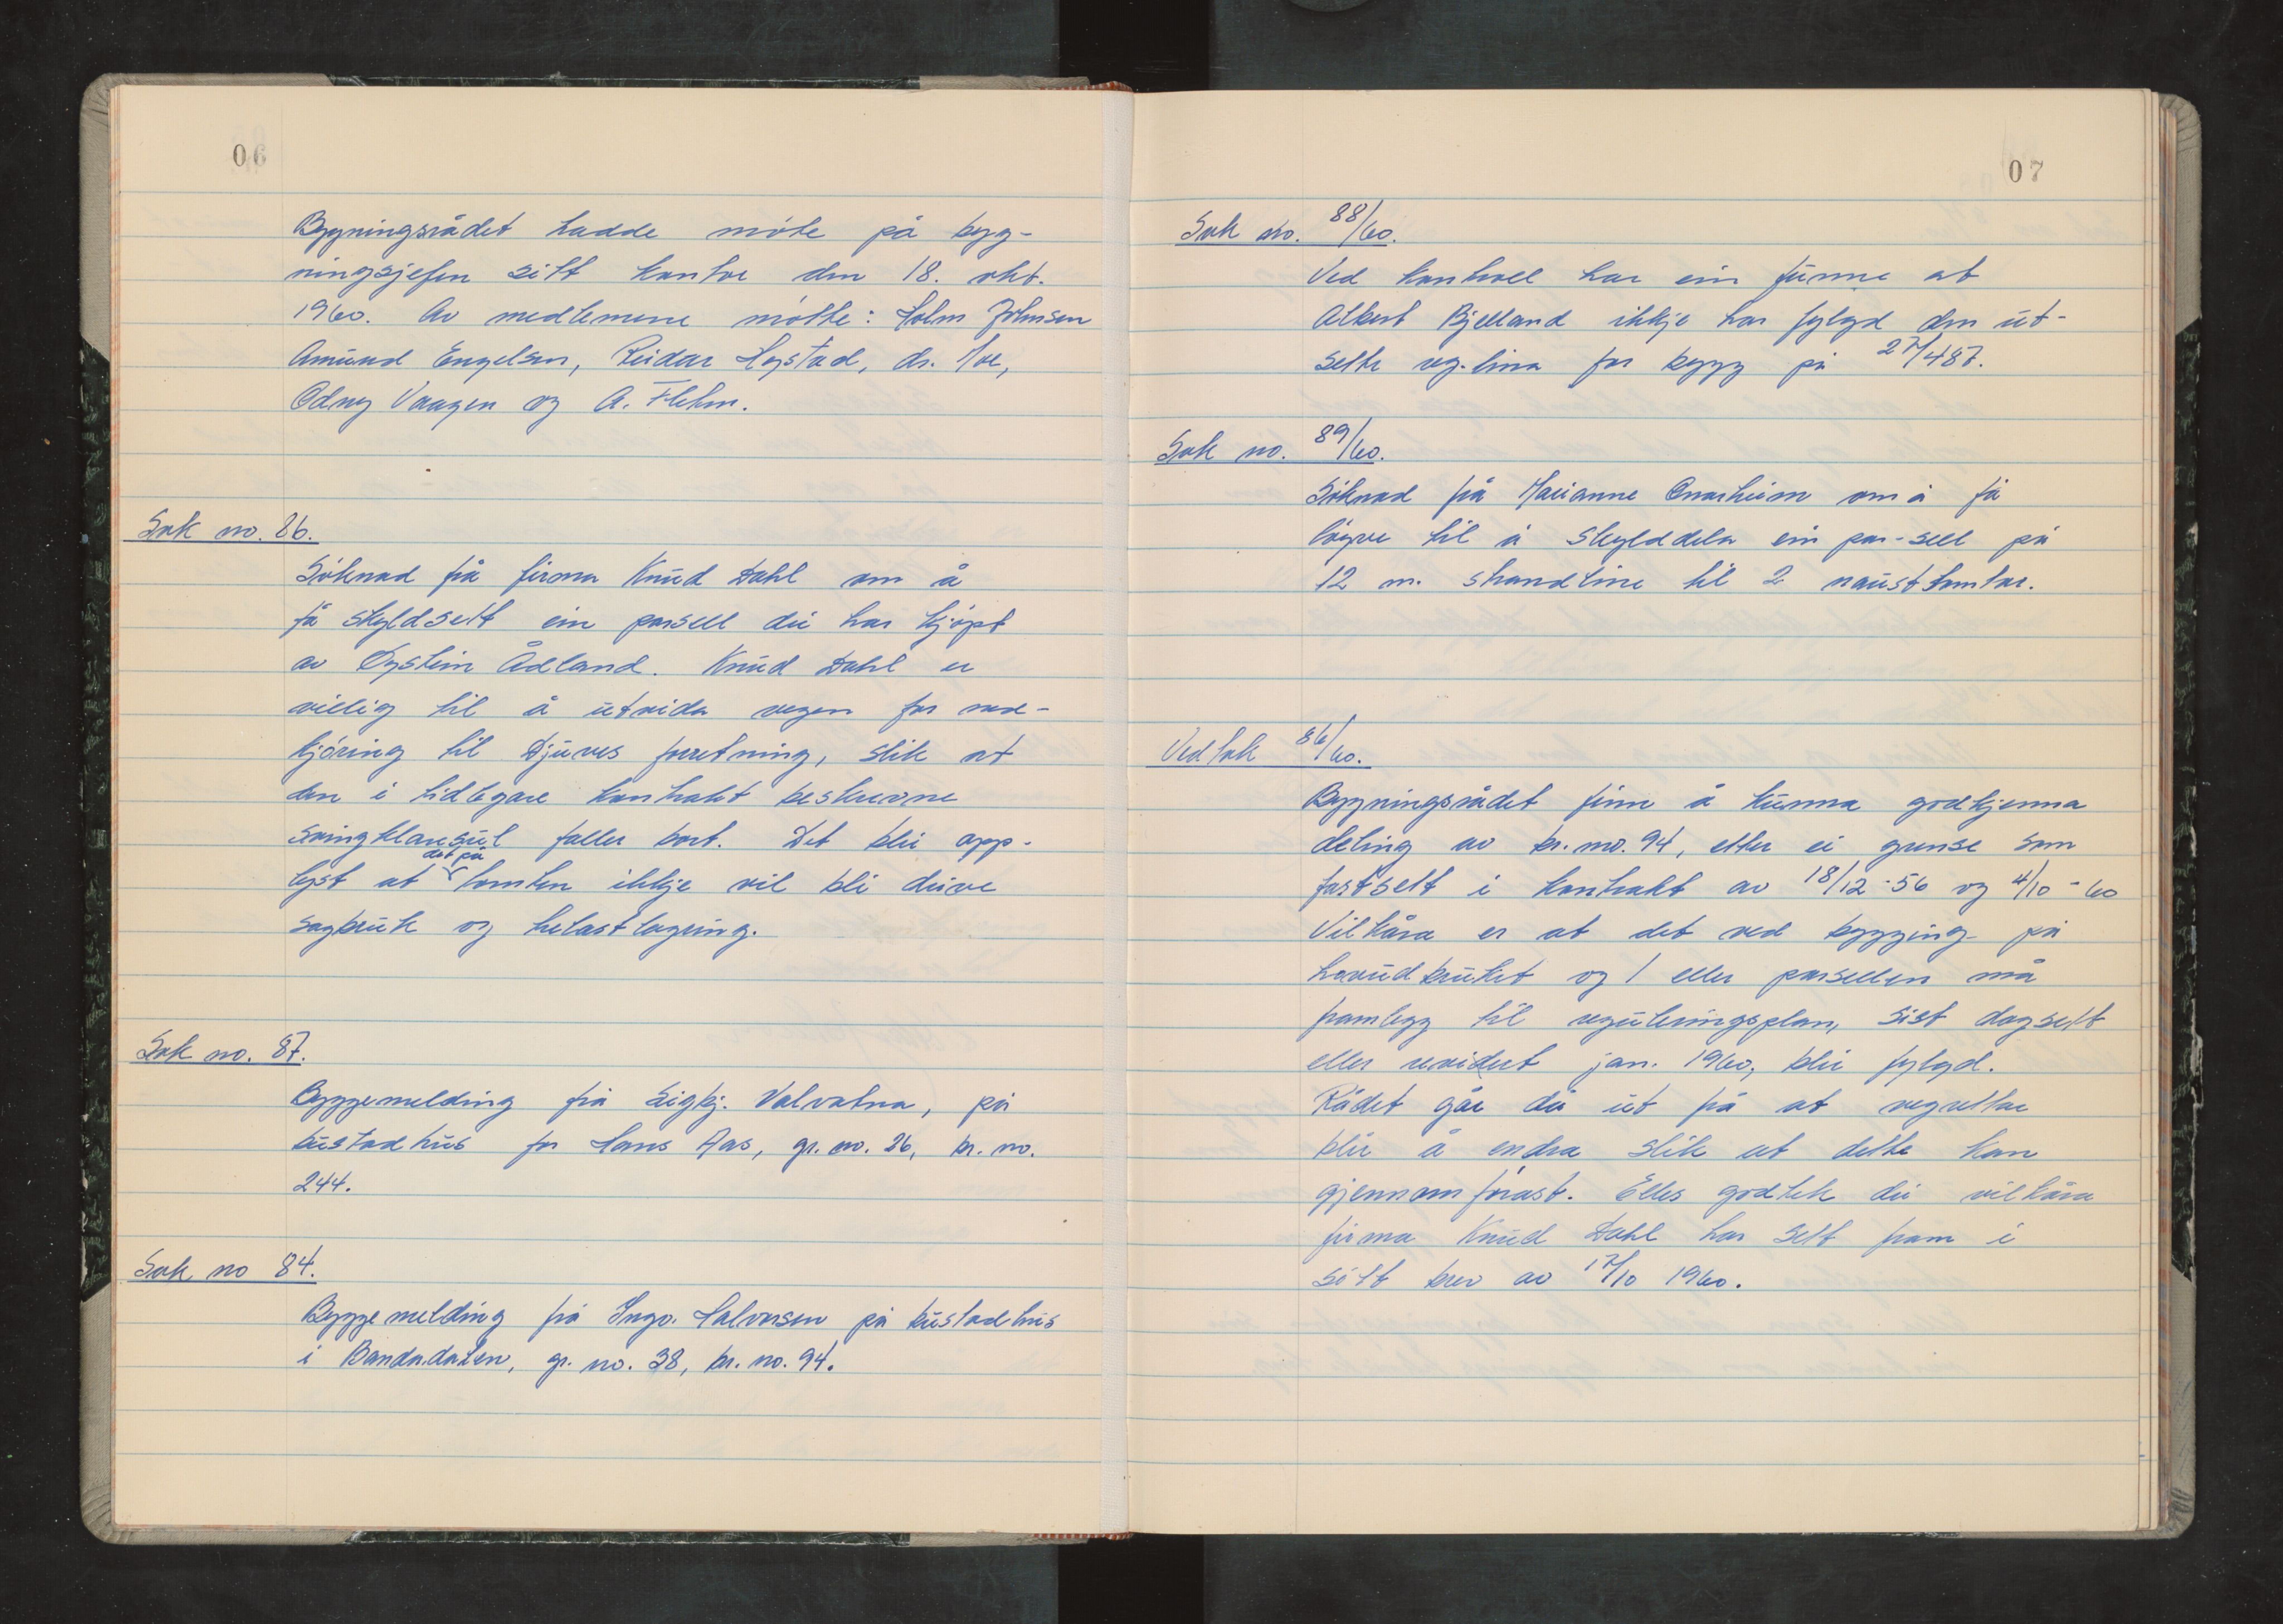 06
Bygningsrådet hadde møte på byg-
ningsjefen sitt kontor den 18. okt.
1960. Av medlemene møtte: Holm Johnsen
Amund Engelsen, Reidar Høystad, dr. Moe,
Odny Vaagen og A. Flehm.
Sak no. 86.
Söknad frå firma Knud Dahl om å
få skyldsett ein parsell dei har kjöpt
av Öystein Ådland. Knud Dahl er
villig til å utvida vegen for ned-
kjöring til Djuves forretning, slik at
den i tidlegare kontrakt beskrevne
svingklausul faller bort. Det blir opp-
det på
lyst at tomten ikkje vil bli drive
sagbruk og trelastlagring.
Sak no. 87.
Byggemelding frå Sigbj. Valvatna, på
bustadhus for Hans Aas, gr. no. 26, br. no.
244.
Sak no 84.
Byggemelding frå Ingv. Halvorsen på bustadhus
i Bandadalen, gr. no. 38, br. no. 94.
07
Sak no. 88/60.
Ved kontroll har ein funne at
Albert Bjelland ikkje har fylgd den ut-
sette reg. lina for bygg på 27/487.
Sak no. 89/60.
Söknad frå Marianne Onarheim om å få
löyve til å skylddela ein par-sell på
12 m. strandline til 2 nausttomtar.
Vedtak 86/60.
Bygningsrådet finn å kunna godkjenna
deling av br. no. 94, etter ei grense som
fastsett i kontrakt av 18/12-56 og 4/10-60
Vilkåra er at det ved bygging på
hovudbruket og / eller parsellen må
framlegg til reguleringsplan, sist dagsett
eller revidert jan. 1960, blir fylgd.
Rådet går då ut frå at vegrettar
blir å endra slik at dette kan
gjennomförast. Elles godtek dei vilkåra
firma Knud Dahl har sett fram i
sitt brev av 17/10 1960.